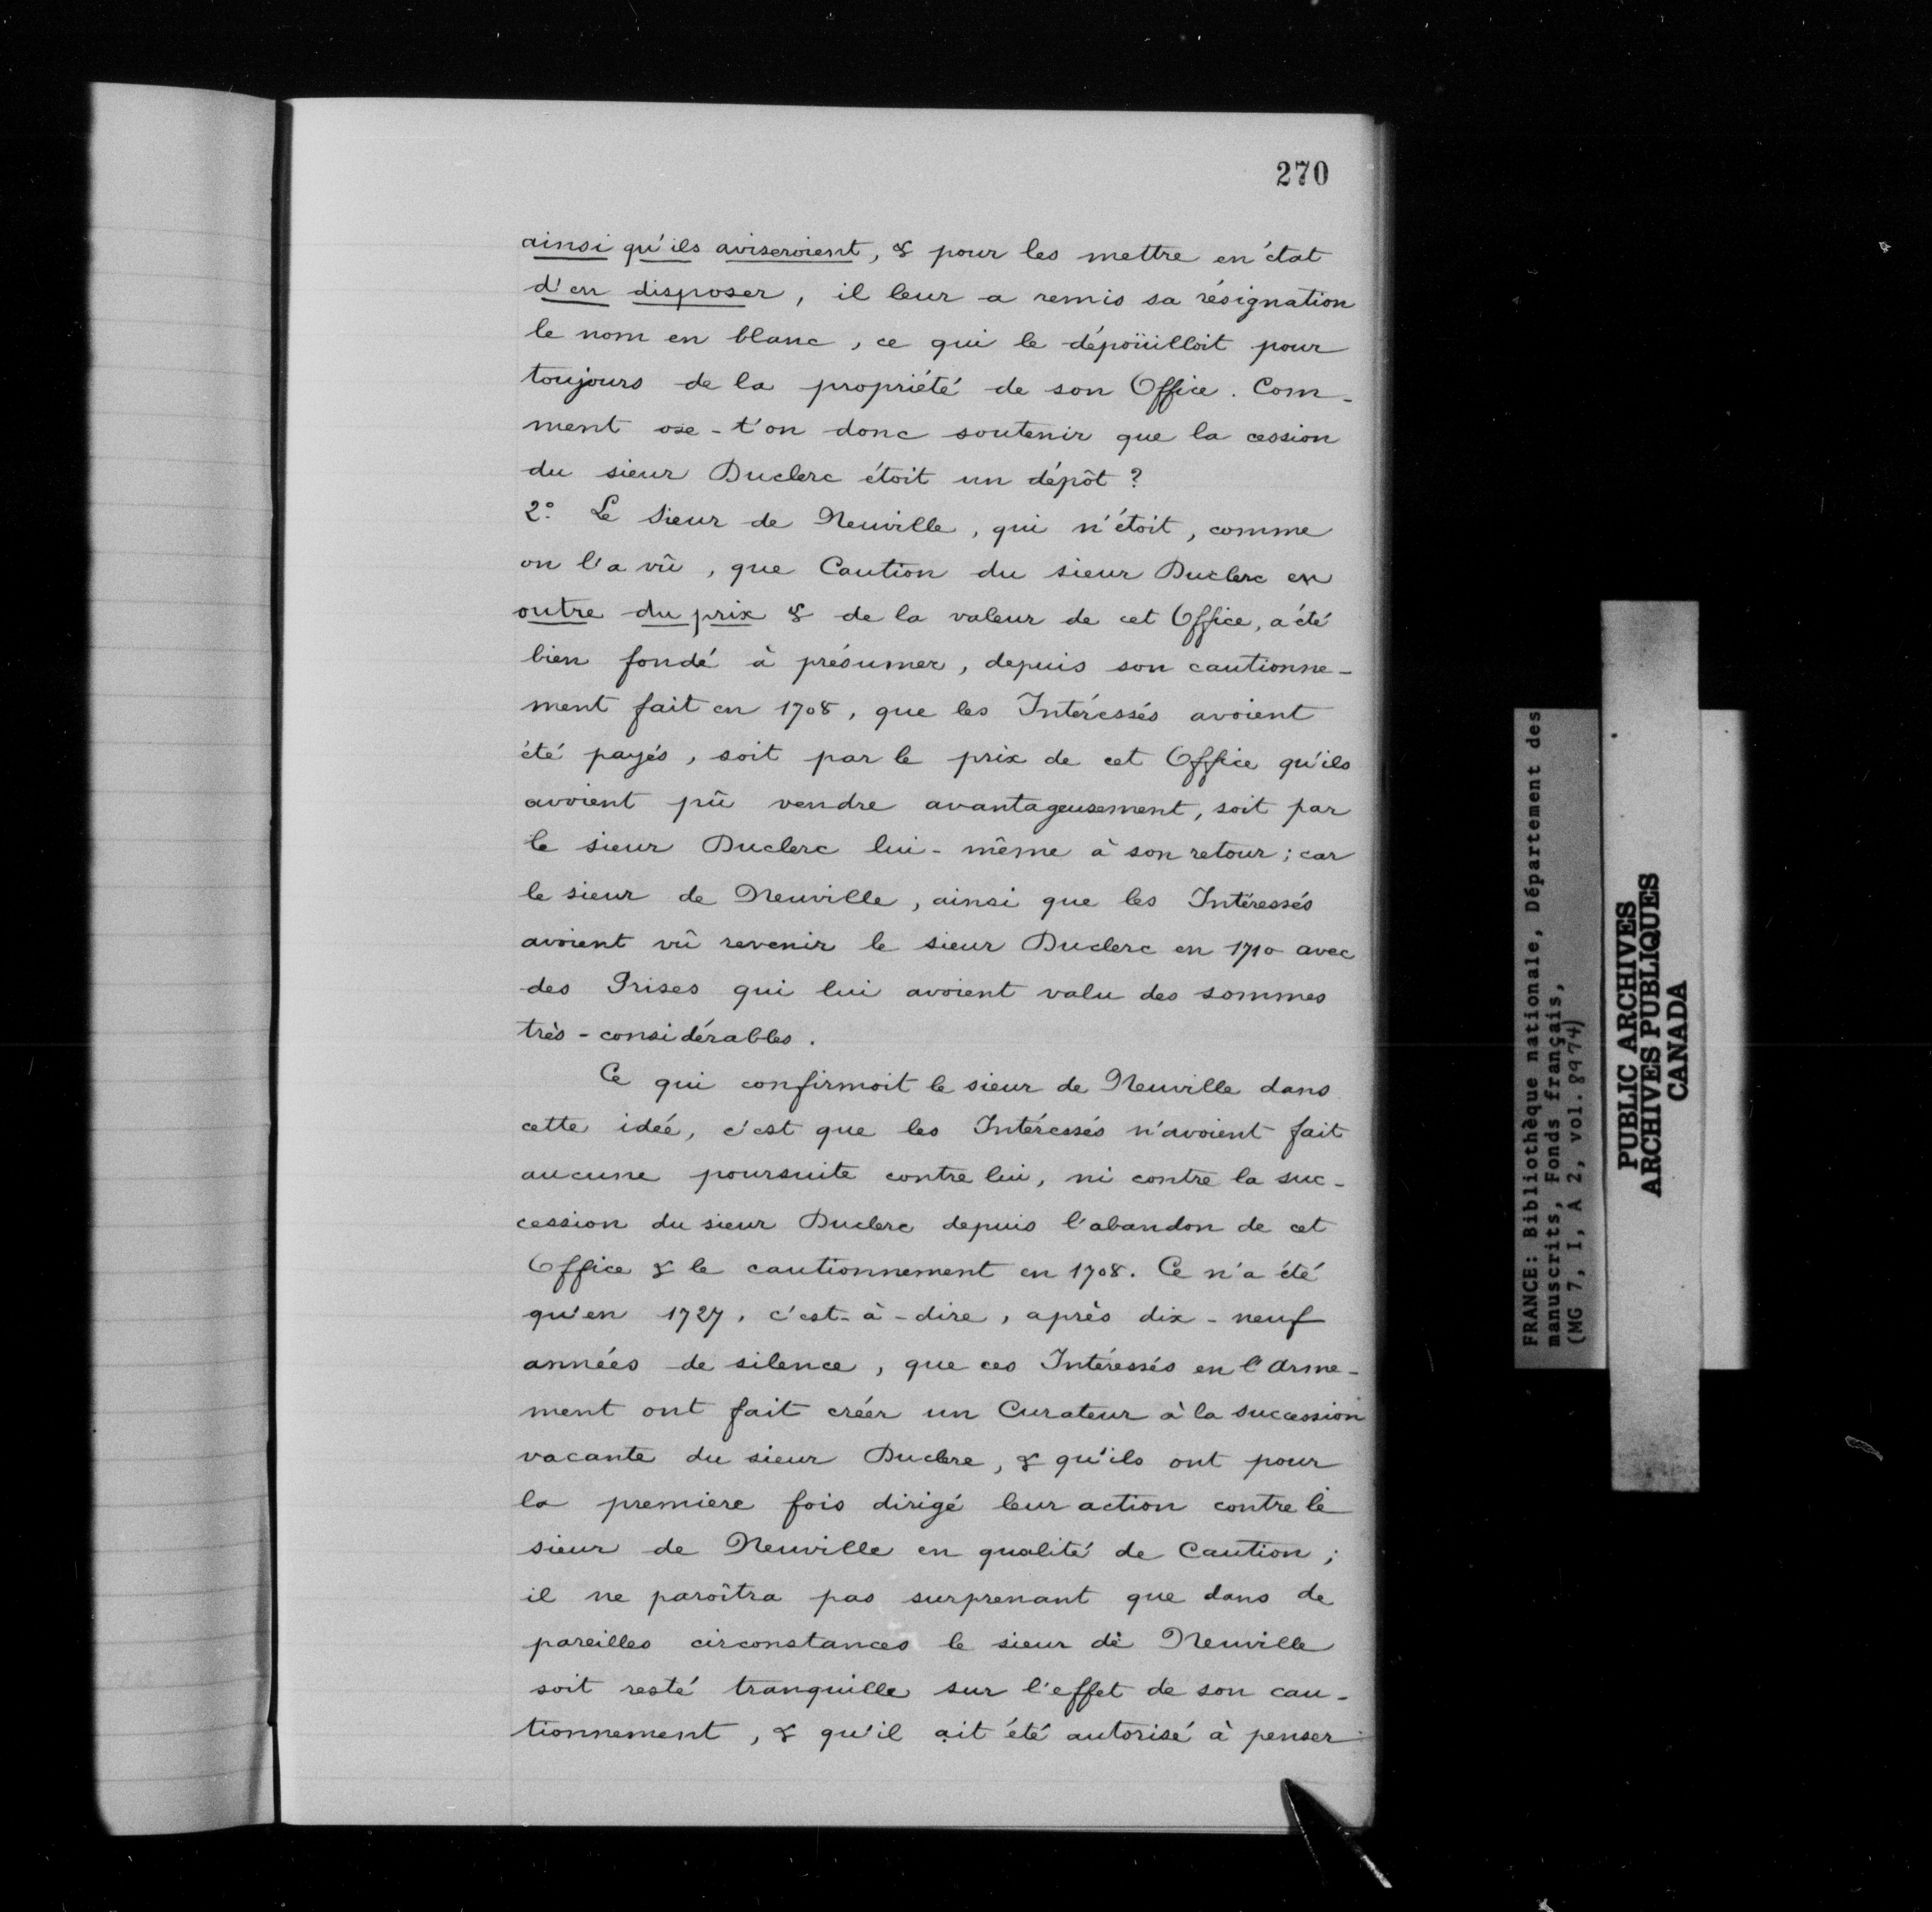 270
ainsi qu'ils aviseroient, & pour les mettre en état
d'en disposer, il leur a remis sa résignation
le nom en blanc, ce qui le dépoüilloit pour
toujours de la propriété de son Office. Com-
ment ose-t'on donc soutenir que la cession
du sieur Duclerc étoit un dépôt?
2° Le Sieur de Neuville, qui n'étoit, comme
on l'a vû, que Caution du sieur Duclerc en
outre du prix & de la valeur de cet Office, a été
bien fondé à présumer, depuis son cautionne-
ment fait en 1708, que les Intéressés avoient
été payés, soit par le prix de cet Office qu'ils
avoient pû vendre avantageusement, soit par
le sieur Duclerc lui-même à son retour; car
le sieur de Neuville, ainsi que les Intéressés
avoient vû revenir le sieur Duclerc en 1710 avec
des Prises qui lui avoient valu des sommes
très-considérables.
Ce qui confirmoit le sieur de Neuville dans
cette idée, c'est que les Intéressés n'avoient fait
aucune poursuite contre lui, ni contre la suc-
cession du sieur Duclerc depuis l'abandon de cet
Office & le cautionnement en 1708. Ce n'a été
qu'en 1727, c'est-à-dire, après dix-neuf
années de silence, que ces Intéressés en l'Arme-
ment ont fait créer un Curateur à la succession
vacante du sieur Duclerc, & qu'ils ont pour
la premiere fois dirigé leur action contre le
sieur de Neuville en qualité de Caution;
il ne paroîtra pas surprenant que dans de
pareilles circonstances le sieur de Neuville
soit resté tranquille sur l'effet de son cau-
tionnement, & qu'il ait été autorisé à penser
FRANCE: Bibliothèque nationale, Département des
manuscrits, Fonds français,
(MG 7, I, A 2, vol. 8974)
PUBLIC ARCHIVES
ARCHIVES PUBLIQUES
CANADA